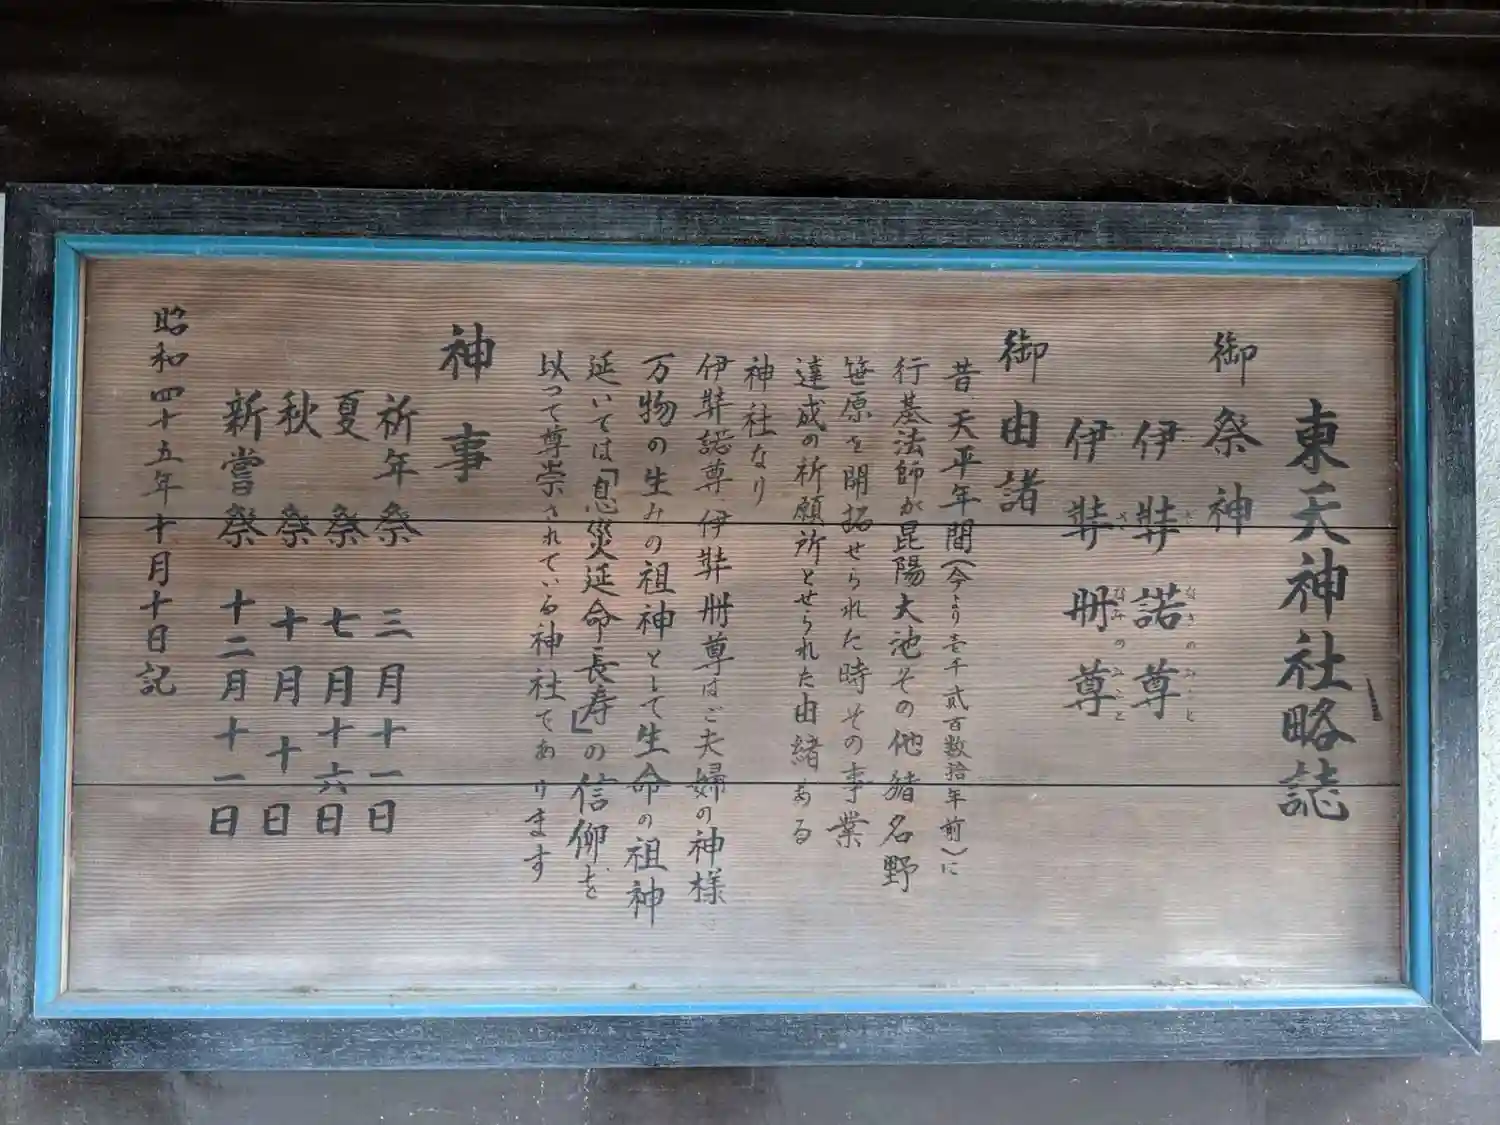 東天神社略誌
御祭神
伊弉諾尊
いざなぎのみこと
伊弉冊尊
いざなみのみこと
御由諸
昔、天平年間(今より壱千貳百数拾年前)に
行基法師が昆陽大池その他猪名野
笹原を開拓せられた時その事業
達成の祈願所とせられた由緒ある
神社なり
伊弉諾尊、伊弉冊尊はご夫婦の神様
万物の生みの祖神として生命の祖神
延いては「息災延命長寿」の信仰を
以って尊崇されている神社であります
神事
祈年祭 三月十一日
夏祭 七月十六日
秋祭 十月十日
新嘗祭 十二月十一日
昭和四十五年十月十日記